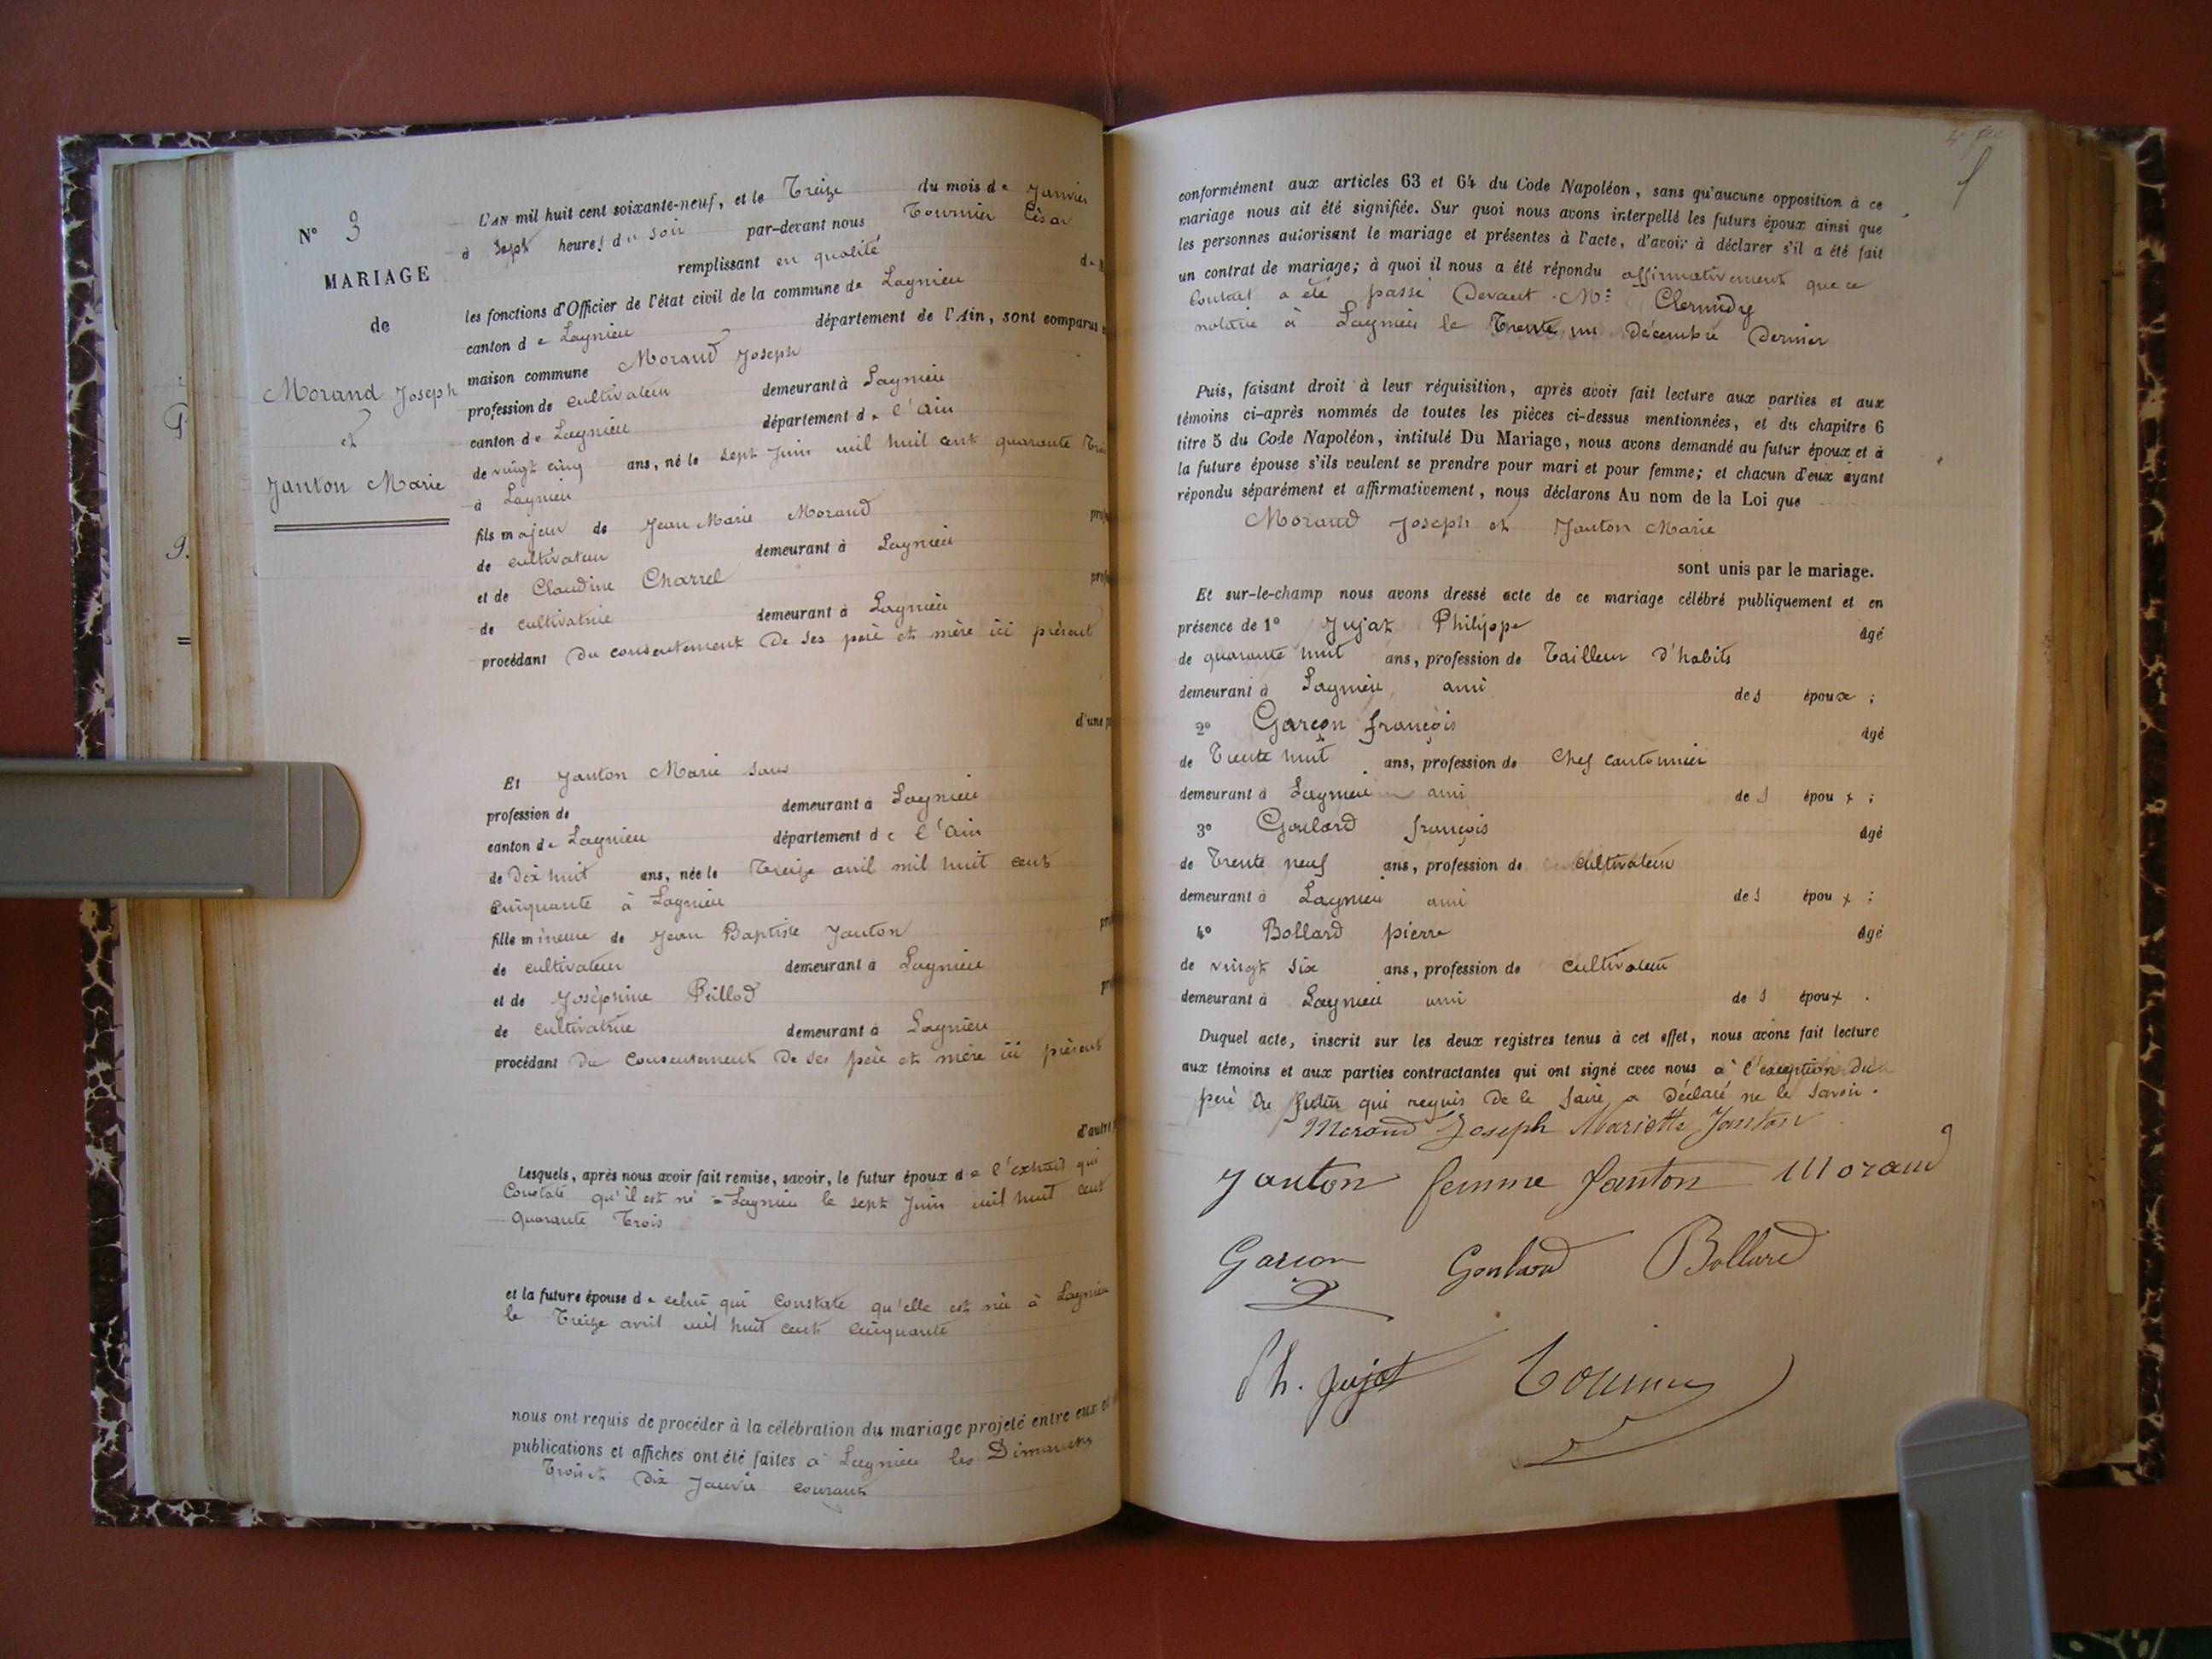 N° 3
MARIAGE
de
Morand Joseph
et
Janton Marie
L'AN mil huit cent soixante-neuf, et le Treize du mois de Janvier
à Sept heures du soir par-devant nous Tournier César
remplissant en qualité de
les fonctions d'Officier de l'état civil de la commune de Lagnieu
canton de Lagnieu département de l'Ain, sont comparus
maison commune Morand Joseph
profession de cultivateur demeurant à Lagnieu
canton de Lagnieu département de l'Ain
de vingt cinq ans, né le sept Juin mil huit cent quarante
à Lagnieu
fils majeur de Jean Marie Morand
de cultivateur demeurant à Lagnieu
et de Claudine Charrel
de cultivatrice demeurant à Lagnieu
procédant du consentement de ses père et mère ici présent
d'une
Et Janton Marie sans
profession de demeurant à Lagnieu
canton de Lagnieu département de l'Ain
de Dix huit ans, née le Treize avril mil huit cent
cinquante à Lagnieu
fille mineure de Jean Baptiste Janton
de cultivateur demeurant à Lagnieu
et de Joséphine Peillod
de cultivatrice demeurant à Lagnieu
procédant du consentement de ses père et mère ici présent
d'autre
Lesquels, après nous avoir fait remise, savoir, le futur époux de l'extrait qui
constate qu'il est né à Lagnieu le sept Juin mil huit cent
quarante Trois
et la future épouse de celui qui constate qu'elle est née à Lagnieu
le Treize avril mil huit cent cinquante
nous ont requis de procéder à la célébration du mariage projeté entre eux et
publications et affiches ont été faites à Lagnieu les Dimanches
Trois et Dix Janvier courant
conformément aux articles 63 et 64 du Code Napoléon, sans qu'aucune opposition à ce
mariage nous ait été signifiée. Sur quoi nous avons interpellé les futurs époux ainsi que
les personnes autorisant le mariage et présentes à l'acte, d'avoir à déclarer s'il a été fait
un contrat de mariage; à quoi il nous a été répondu affirmativement que ce
contrat a été passé devant Me
notaire à Lagnieu le Trente un Décembre Dernier
Puis, faisant droit à leur réquisition, après avoir fait lecture aux parties et aux
témoins ci-après nommés de toutes les pièces ci-dessus mentionnées, et du chapitre 6
titre 5 du Code Napoléon, intitulé Du Mariage, nous avons demandé au futur époux et à
la future épouse s'ils veulent se prendre pour mari et pour femme; et chacun d'eux ayant
répondu séparément et affirmativement, nous déclarons Au nom de la Loi que
Morand Joseph et Janton Marie
sont unis par le mariage.
Et sur-le-champ nous avons dressé acte de ce mariage célébré publiquement et en
présence de 1° Jujat Philippe âgé
de quarante huit ans, profession de Tailleur d'habits
demeurant à Lagnieu, ami des époux ;
2° Garçon françois âgé
de Trente huit ans, profession de Chef cantonnier
demeurant à Lagnieu ami des époux ;
3° Goulard françois âgé
de Trente neuf ans, profession de cultivateur
demeurant à Lagnieu ami des époux ;
4° Bollard pierre âgé
de vingt six ans, profession de cultivateur
demeurant à Lagnieu ami des époux .
Duquel acte, inscrit sur les deux registres tenus à cet effet, nous avons fait lecture
aux témoins et aux parties contractantes qui ont signé avec nous à l'exception du
père du futur qui requis de le faire a déclaré ne le savoir.
Morand Joseph Mariette Janton
Janton femme Janton Morand
Garcon Goulard Bollard
Ph. Jujat Tournier